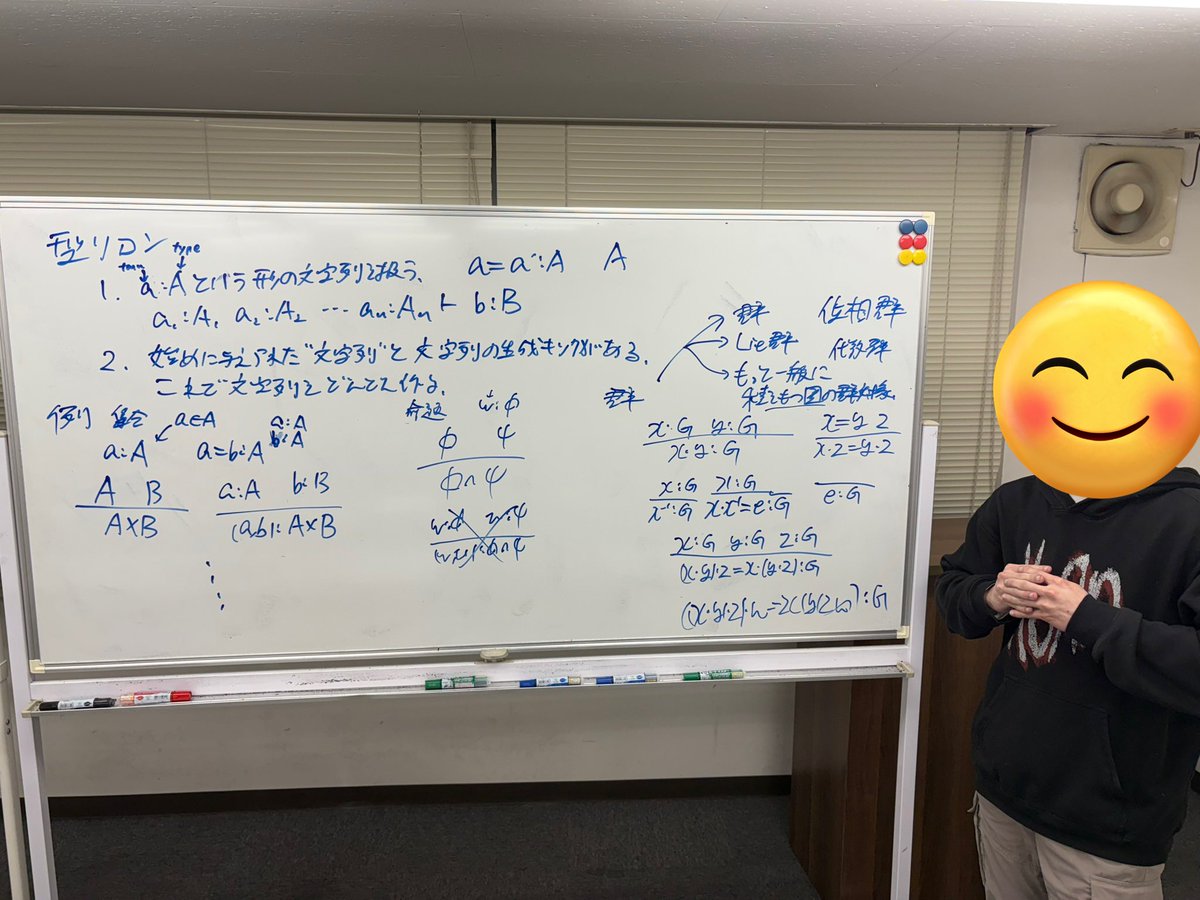 型リロン
term type
1. a:Aという形の文字列を扱う、 a=a':A A
a₁:A₁ a₂:A₂ … aₙ:Aₙ ⊢ b:B
2. 始めに与えられた"文字列"と文字列の生成キソクがある、
これで文字列をどんどん作る。
例 集合 a∈A
a:A a=b:A a:A b:A
A B
A×B
a:A b:B
(a,b): A×B
命題 w:φ
φ ψ
φ∧ψ
群
群 位相群
Lie群 代数群
もって一般に
積をもつ圏の群対象
x:G y:G
x·y:G
x=y z
x·z=y·z
x:G
x⁻¹:G
x:G
x·x⁻¹=e:G
e:G
x:G y:G z:G
(x·y)·z=x·(y·z):G